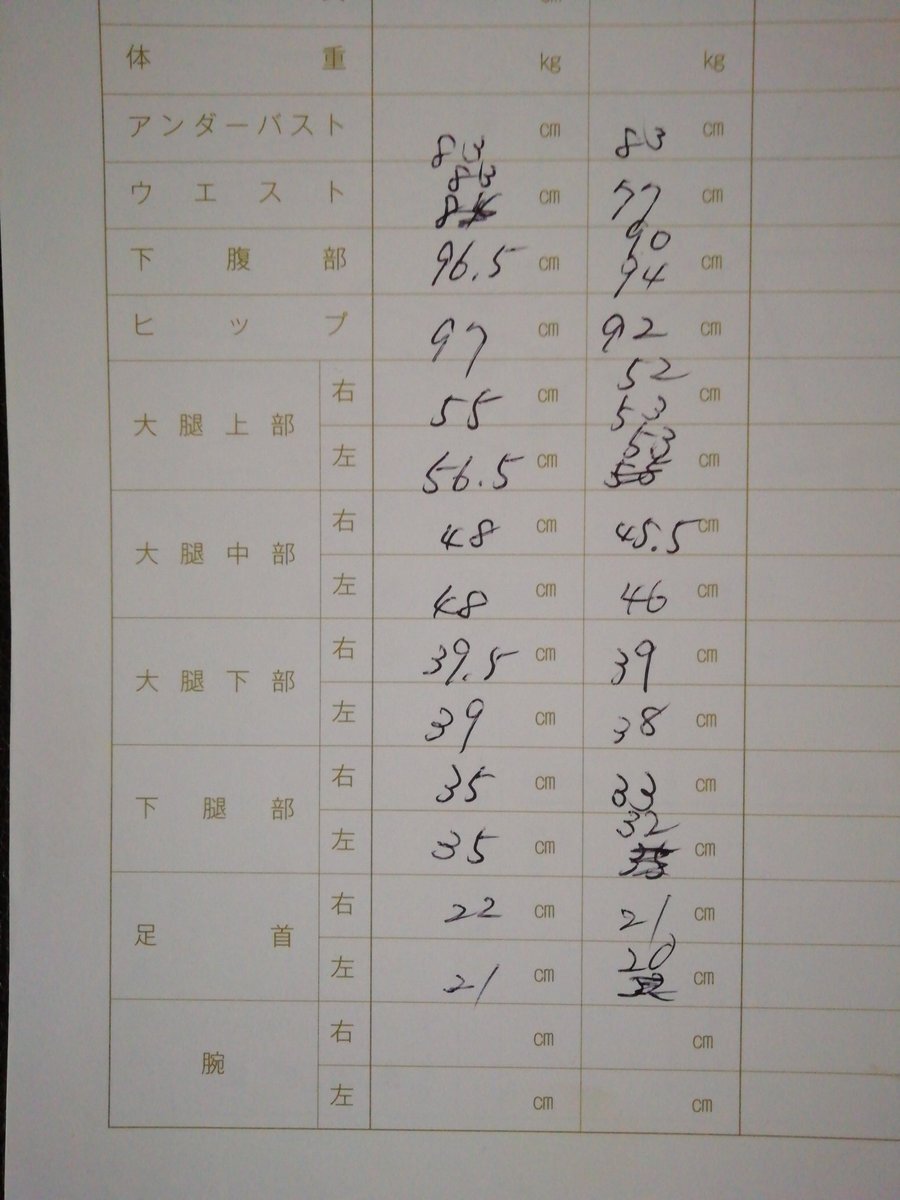 cm cm
体重 kg kg
アンダーバスト 83 cm 83 cm
ウエスト 83 cm 77 cm
下腹部 96.5 cm 90 94 cm
ヒップ 97 cm 92 cm
大腿上部 右 55 cm 52 53 cm
左 56.5 cm 53 cm
大腿中部 右 48 cm 45.5 cm
左 48 cm 46 cm
大腿下部 右 39.5 cm 39 cm
左 39 cm 38 cm
下腿部 右 35 cm 33 cm
左 35 cm 32 cm
足首 右 22 cm 21 cm
左 21 cm 20 cm
腕 右 cm cm
左 cm cm